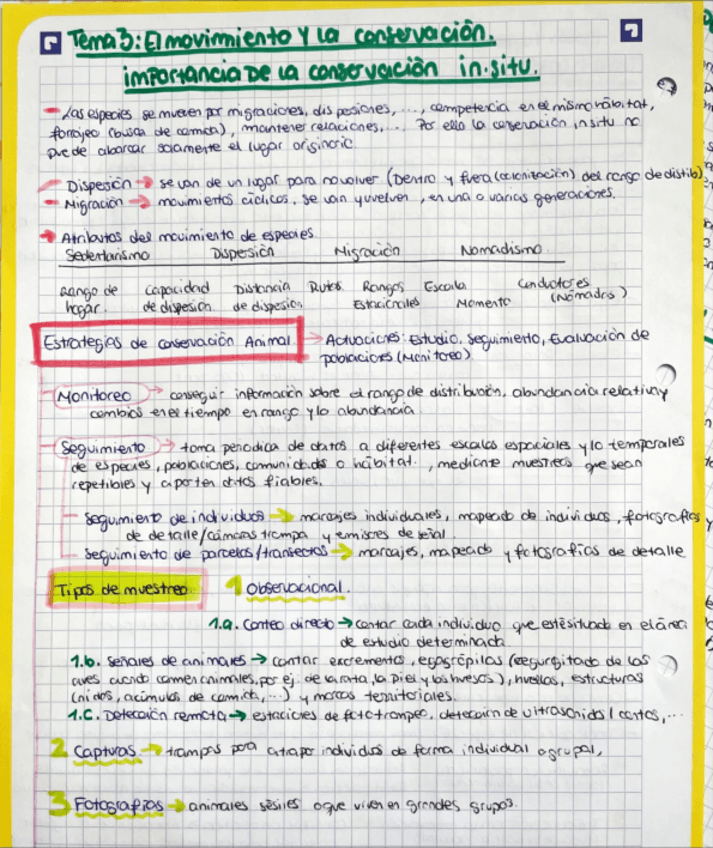 Tema 3: El movimiento y la conservación.
importancia De la conservación in.situ.
Las especies se mueven por migraciones, dispesiones, ..., competencia en el mismo hábitat,
forrajeo (busca de comida), mantener relaciones,... Por ello la conservación in situ no
puede abarcar solamente el lugar originario
Dispesión → se van de un lugar para no volver (Dentro y fuera (colonización) del rango de distrib)
Migración → movimientos cíclicos, se van y vuelven, en una o varias generaciones.
Atributos del movimiento de especies
Sedentarismo Dispesión Migración Nomadismo
Rango de Capacidad Distancia Rutas Rangos Escala Conductores
hogar. de dispesión de dispesion Estacionales Momento (Nómadas)
Estrategias de conservación Animal → Actuaciones: Estudio, seguimiento, Evaluación de
poblaciones (Monitoreo)
Monitoreo → conseguir información sobre el rango de distribución, abundancia relativa y
cambios en el tiempo en rango y/o abundancia
Seguimiento → toma periodica de datos a diferentes escalas espaciales y/o temporales
de especies, poblaciones, comunidades o hábitat., mediante muestreos que sean
repetibles y aporten datos fiables.
Seguimiento de individuos → marcajes individuales, mapeado de individuos, fotografías
de detalle/cámaras trampa y emisores de señal.
Seguimiento de parcelas/transectos → marcajes, mapeado y fotografías de detalle
Tipos de muestreo. 1 Observacional.
1.a. Conteo directo → contar cada individuo que esté situado en el área
de estudio determinada
1.b. Señales de animales → contar excrementos, egagrópilas (regurgitado de las
aves cuando comen animales, por ej. de la rata, la piel y los huesos), huellas, estructuras
(nidos, acúmulos de comida, ...) y marcas territoriales.
1.C. Detección remota → estaciones de fototrampeo, detección de ultrasonidos / cantos,...
2 Capturas → trampas para atrapar individuos de forma individual o grupal,
3 Fotografías → animales sésiles o que viven en grandes grupos.